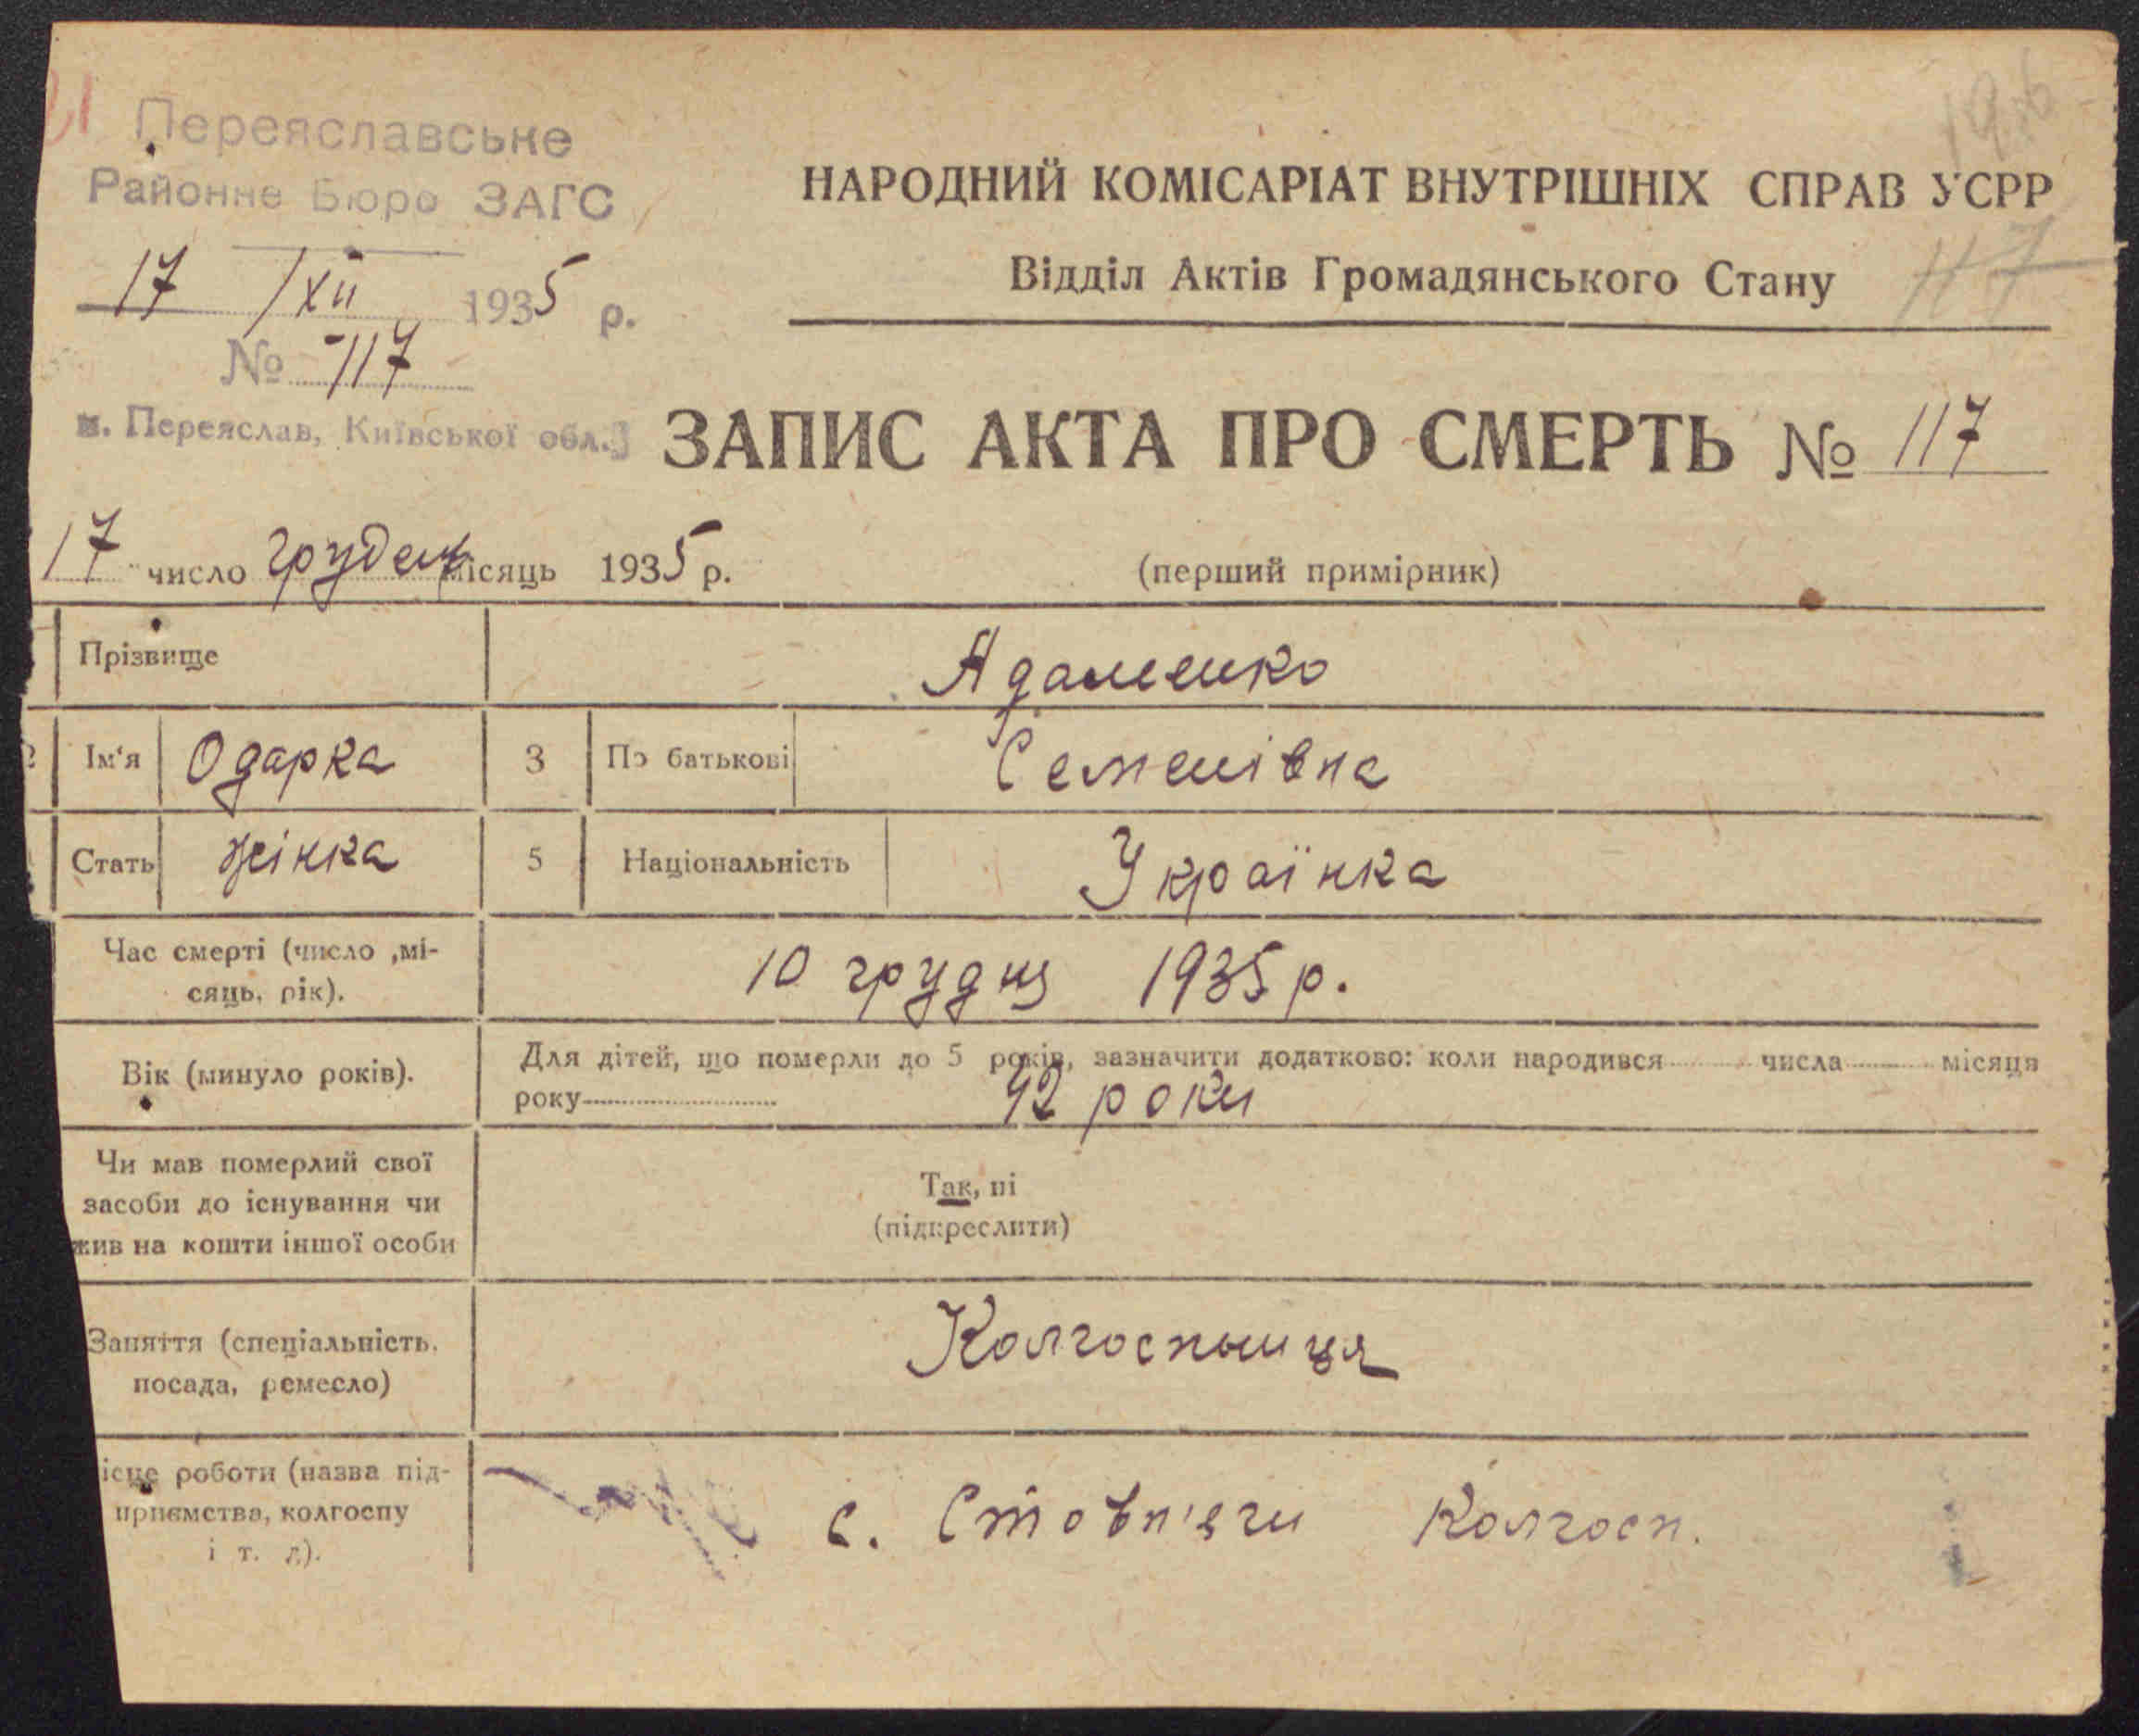 Переяславське
Районне Бюро ЗАГС
17 / XII 1935 р.
№ 117
м. Переяслав, Київської обл.
НАРОДНИЙ КОМІСАРІАТ ВНУТРІШНІХ СПРАВ УСРР
Відділ Актів Громадянського Стану
117
ЗАПИС АКТА ПРО СМЕРТЬ № 117
17 число грудень місяць 1935 р.
(перший примірник)
Прізвище Адаменко
Ім'я Одарка 3 По батькові Семенівна
Стать жінка 5 Національність Українка
Час смерті (число ,мі-
сяць, рік).
10 грудня 1935 р.
Вік (минуло років).
Для дітей, що померли до 5 років, зазначити додатково: коли народився числа місяця
року 42 роки
Чи мав померлий свої
засоби до існування чи
жив на кошти іншої особи
Так, ні
(підкреслити)
Заняття (спеціальність,
посада, ремесло)
Колгоспниця
ісце роботи (назва під-
приємства, колгоспу
і т. д).
с. Стовп'яги Колгосп.